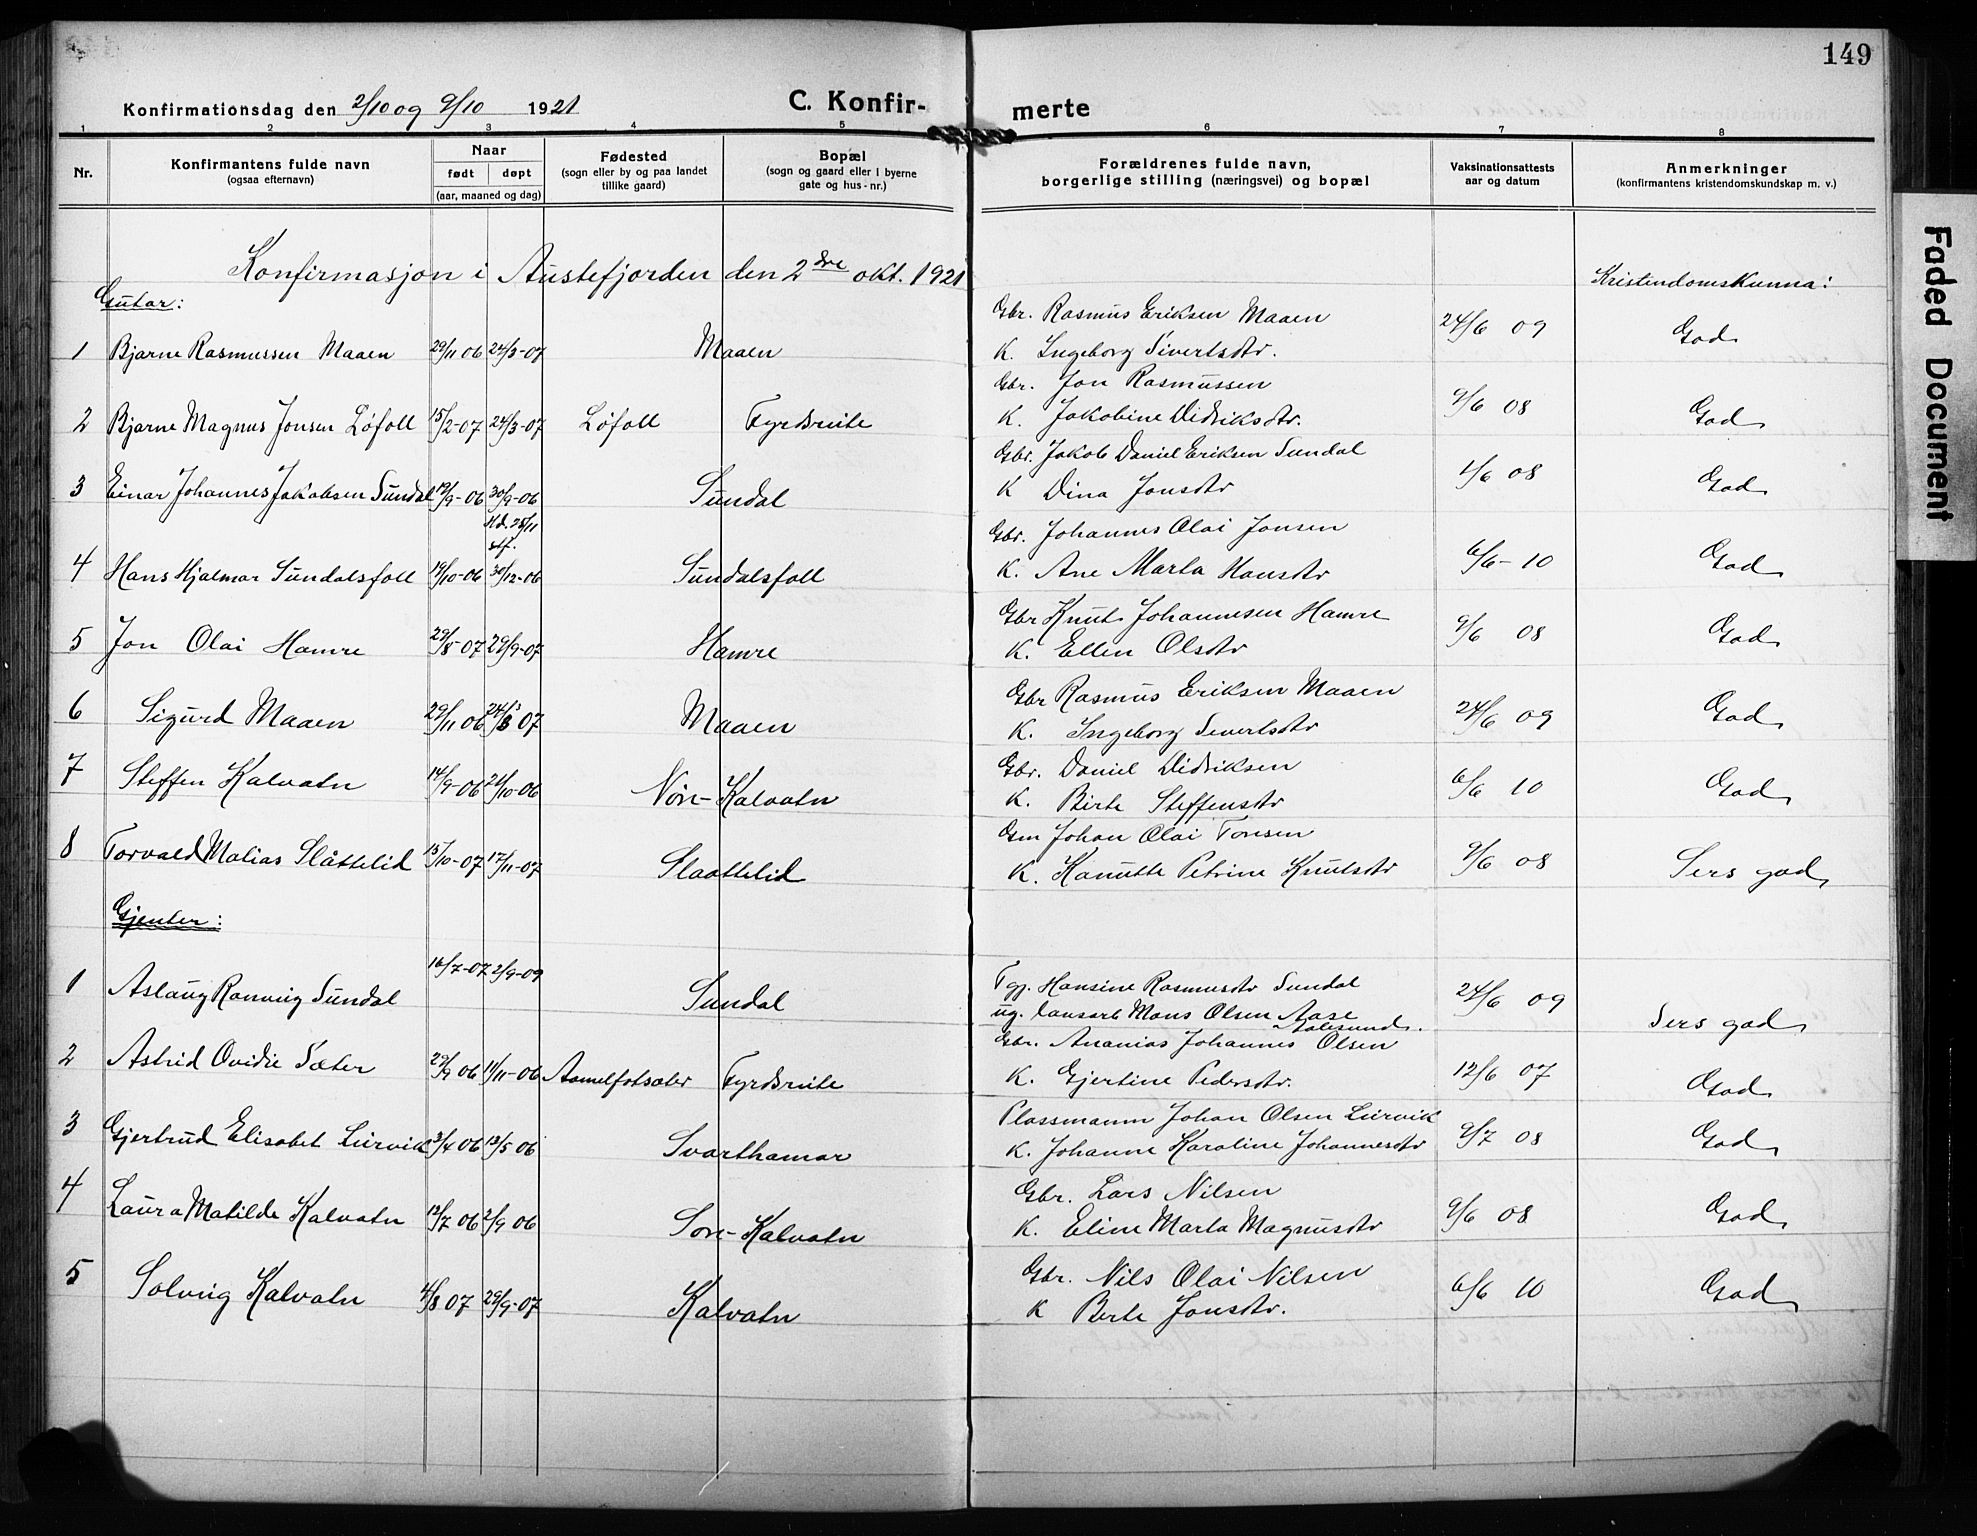 149
Konfirmationsdag den 2/10 og 9/10 1921
C. Konfir-
merte
1 2 3 4 5 6 7 8
Nr.
Konfirmantens fulde navn
(ogsaa efternavn)
Naar
født døpt
(aar, maaned og dag)
Fødested
(sogn eller by og paa landet
tillike gaard)
Bopæl
(sogn og gaard eller i byerne
gate og hus-nr.)
Forældrenes fulde navn,
borgerlige stilling (næringsvei) og bopæl
Vaksinationsattests
aar og datum
Anmerkninger
(konfirmantens kristendomskundskap m. v.)
Konfirmasjon i Austefjorden den 2dre okt. 1921
Kristendomskunna:
Gutar:
Gbr. Rasmus Eriksen Maaen
1 Bjarne Rasmussen Maaen 29/11 06 24/3-07 Maaen K. Ingeborg Sivertsdtr. 24/6 09 God
Gbr. Jon Rasmussen
2 Bjarne Magnus Jonsen Løfoll 15/2-07 24/3-07 Løfoll Fyrdsreite K. Jakobine Didriksdtr. 9/6 08 God
Gbr. Jakob Daniel Eriksen Sundal
3 Einar Johannes Jakobsen Sundal 19/9-06 30/9-06 Sundal K Dina Jonsdtr 1/6 08 God
H.d. 25/11
stf.
Gbr. Johannes Olai Jonsen
4 Hans Hjalmar Sundalsfoll 19/10-06 30/12-06 Sundalsfoll K. Ane Marta Hansdtr 6/6-10 God
Gbr Knut Johannesen Hamre
5 Jon Olai Hamre 29/8-07 29/9-07 Hamre K. Ellen Olsdtr 9/6 08 God
Gbr Rasmus Eriksen Maaen
6 Sigurd Maaen 29/11 06 24/3 07 Maaen K. Ingeborg Sivertsdtr 24/6 09 God
Gbr. Daniel Didriksen
7 Steffen Kalvatn 14/9-06 21/10-06 Nör-Kalvatn K. Birte Steffensdtr 6/6 10 God
Gm Johan Olai Tonsen
8 Torvald Matias Slåttelid 15/10-07 17/11-07 Slaattelid K. Kanutte Petrine Knutsdtr 9/6 08 Sers god
Gjenter:
Tgj. Hansine Rasmusdtr Sundal
1 Aslaug Ranveig Sundal 16/7-07 2/9-09 Sundal ug. lausarb Mons Olsen Aase 24/6 09 Sers god
Aalesund.
Gbr. Ananias Johannes Olsen
2 Astrid Ovidie Sæter 29/9 06 11/11-06 Aamelfotsæter Fyrdsreite K. Gjertine Pedersdtr. 12/6 07 God
Plassmann Johan Olsen Lurvik
3 Gjertrud Elisabet Lurvik 3/4 06 13/5 06 Svarthamar K. Johanne Karoline Johannesdtr 9/7 08 God
Gbr. Lars Nilsen
4 Laura Matilde Kalvatn 12/7 06 2/9 06 Sør-Kalvatn K. Eline Marta Magnusdtr 9/6 08 God
Gbr. Nils Olai Nilsen
5 Solveig Kalvatn 4/8 07 29/9-07 Kalvatn K Berte Jonsdtr. 6/6 10 God
Faded Document